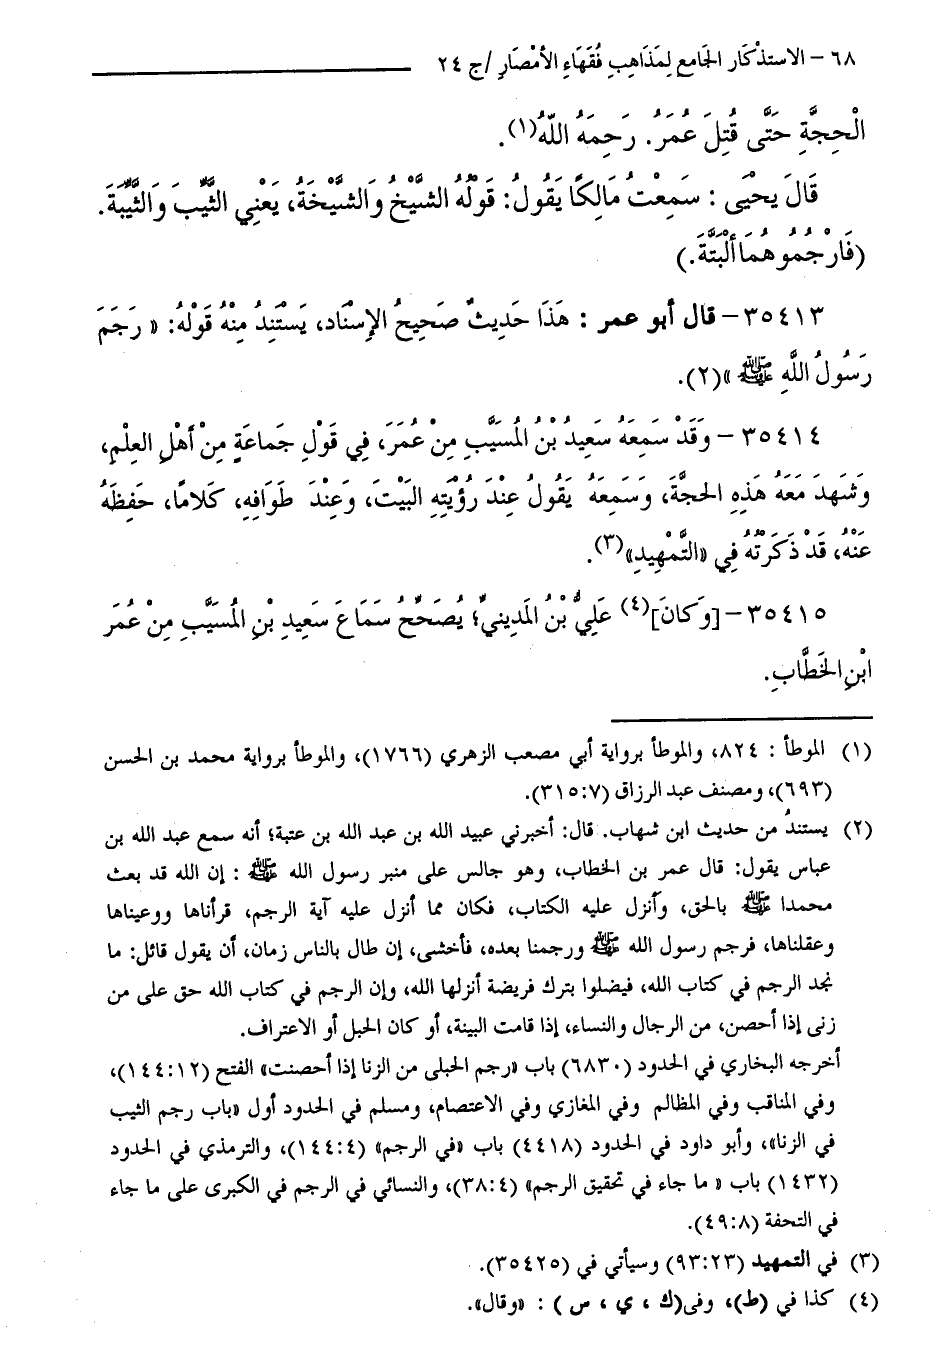 ٦٨ – الاستذْكار الجَامع لِمَذَاهِبِ فُقَهَاءِ الأمْصَارِ /ج ٢٤
الْحِجَّةِ حَتَّى قُتِلَ عُمَرُ. رَحِمَهُ اللّهُ(١).
قَالَ يحْيَى : سَمِعْتُ مَالِكًا يَقُولُ: قَوْلُهُ الشَّيْخُ وَالشَّيْخَةُ، يَعْنِي الثَّيِّبَ وَالثَّيِّبَةَ.
(فَارْجُمُوهُمَا أَلْبَتَّةَ.)
٣٥٤١٣– قال أبو عمر : هَذَا حَدِيثٌ صَحِيحُ الإِسْنَادِ، يَسْتَنِدُ مِنْهُ قَوْلُهُ: « رَجَمَ
رَسُولُ اللَّهِ ﷺ »(٢).
٣٥٤١٤ – وَقَدْ سَمِعَهُ سَعِيدُ بْنُ المُسَيَّبِ مِنْ عُمَرَ، فِي قَوْلِ جَماعَةٍ مِنْ أَهْلِ العِلْمِ،
وَشَهِدَ مَعَهُ هَذِهِ الحجَّةَ، وَسَمِعَهُ يَقُولُ عِنْدَ رُؤْيَتِهِ البَيْتَ، وَعِنْدَ طَوَافِهِ، كَلامًا، حَفِظَهُ
عَنْهُ، قَدْ ذَكَرْتُهُ فِي «التَّمْهِيدِ»(٣).
٣٥٤١٥– [وَكانَ](٤) عَلِيُّ بْنُ المَدِينيِّ؛ يُصَحِّحُ سَمَاعَ سَعِيدِ بْنِ المُسَيَّبِ مِنْ عُمَرَ
ابْنِ الخَطَّابِ.
(١) الموطأ : ٨٢٤، والموطأ برواية أبي مصعب الزهري (١٧٦٦)، والموطأ برواية محمد بن الحسن
(٦٩٣)، ومصنف عبد الرزاق (٣١٥:٧).
(٢) يستندُ من حديث ابن شهاب. قال: أخبرني عبيد الله بن عبد الله بن عتبة؛ أنه سمع عبد الله بن
عباس يقول: قال عمر بن الخطاب، وهو جالس على منبر رسول الله ﷺ : إن الله قد بعث
محمدا ﷺ بالحق، وأنزل عليه الكتاب، فكان مما أنزل عليه آية الرجم، قرأناها ووعيناها
وعقلناها، فرجم رسول الله ﷺ ورجمنا بعده، فأخشى، إن طال بالناس زمان، أن يقول قائل: ما
نجد الرجم في كتاب الله، فيضلوا بترك فريضة أنزلها الله، وإن الرجم في كتاب الله حق على من
زنى إذا أحصن، من الرجال والنساء، إذا قامت البينة، أو كان الحبل أو الاعتراف.
أخرجه البخاري في الحدود (٦٨٣٠) باب «رجم الحبلى من الزنا إذا أحصنت» الفتح (١٤٤:١٢)،
وفي المناقب وفي المظالم وفي المغازي وفي الاعتصام، ومسلم في الحدود أول «باب رجم الثيب
في الزنا»، وأبو داود في الحدود (٤٤١٨) باب «في الرجم» (١٤٤:٤)، والترمذي في الحدود
(١٤٣٢) باب « ما جاء في تحقيق الرجم» (٣٨:٤)، والنسائي في الرجم في الكبرى على ما جاء
في التحفة (٤٩:٨).
(٣) في التمهيد (٩٣:٢٣) وسيأتي في (٣٥٤٢٥).
(٤) كذا في (ط)، وفى(ك ، ي ، س ) : «وقال».